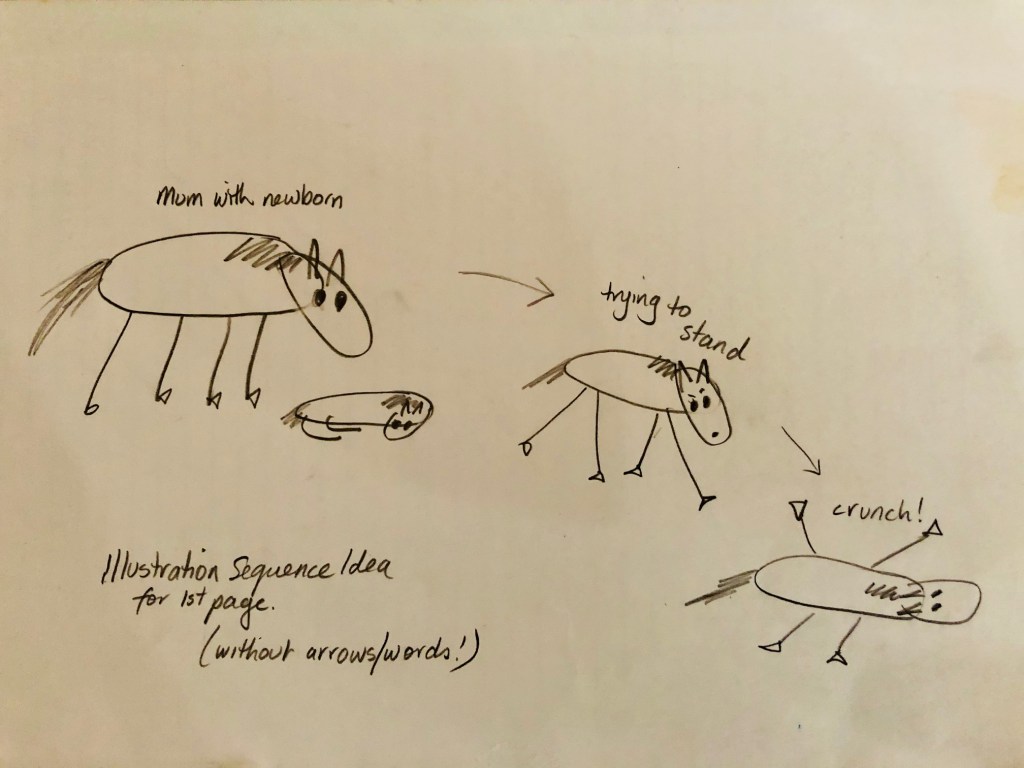 Mum with newborn
trying to
stand
crunch!
Illustration Sequence Idea
for 1st page.
(without arrows/words!)